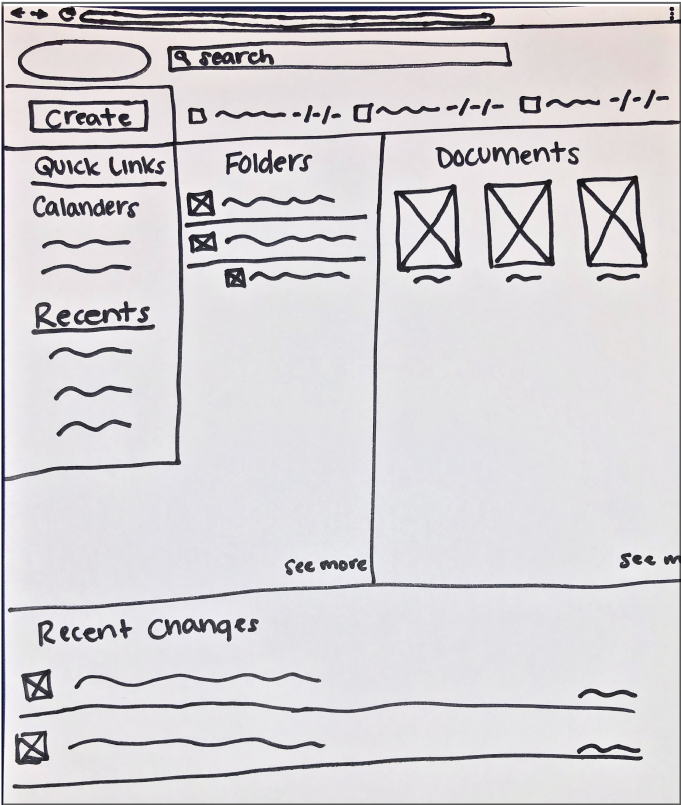 search
Create
-/-/- -/-/- -/-/-
Quick Links
Calanders
Recents
Folders
see more
Documents
see m
Recent Changes